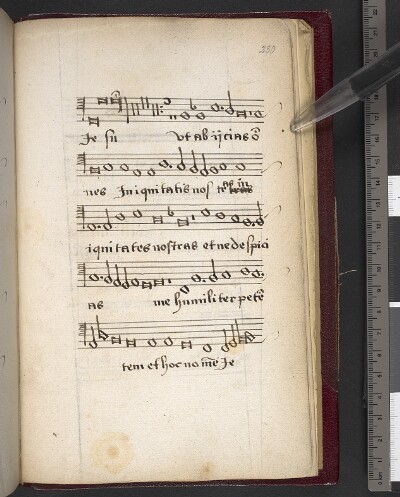 230
Je su vt ab ijcias ō
nes Iniquitatis nos te ab in
iquitates nostras et ne despici
as me humiliter petē
tem et hoc no mē Je